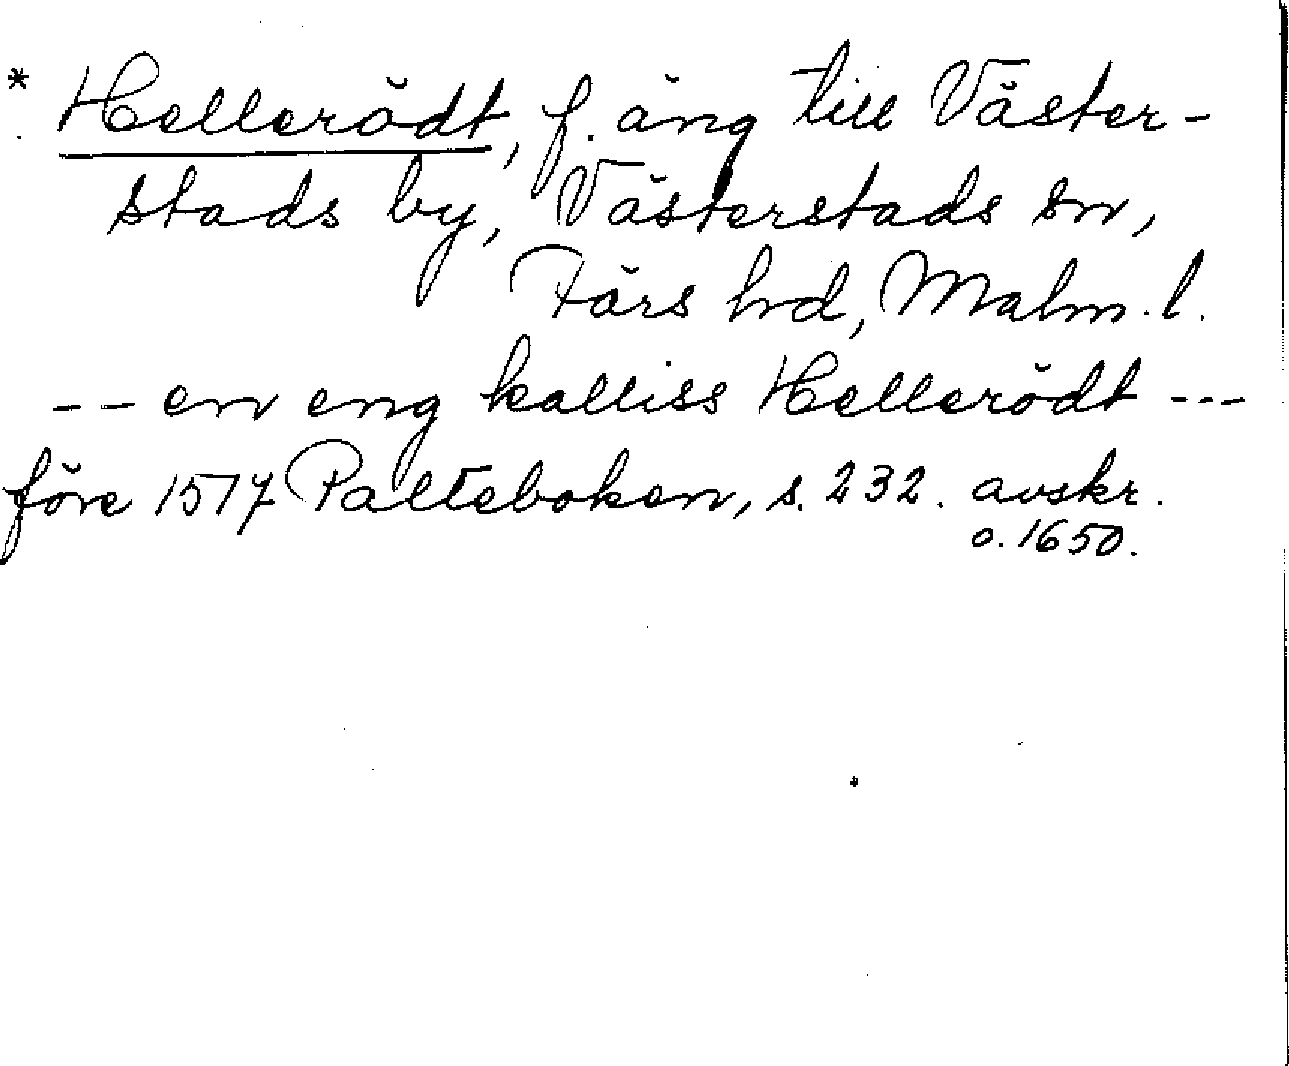 * Hellerödt, f. äng till Väster-
stads by, Västerstads sn,
Färs hd, Malm. l.
-- en eng kalliss Hellerödt ---
före 1517 Palteboken, s. 232. avskr.
o. 1650.